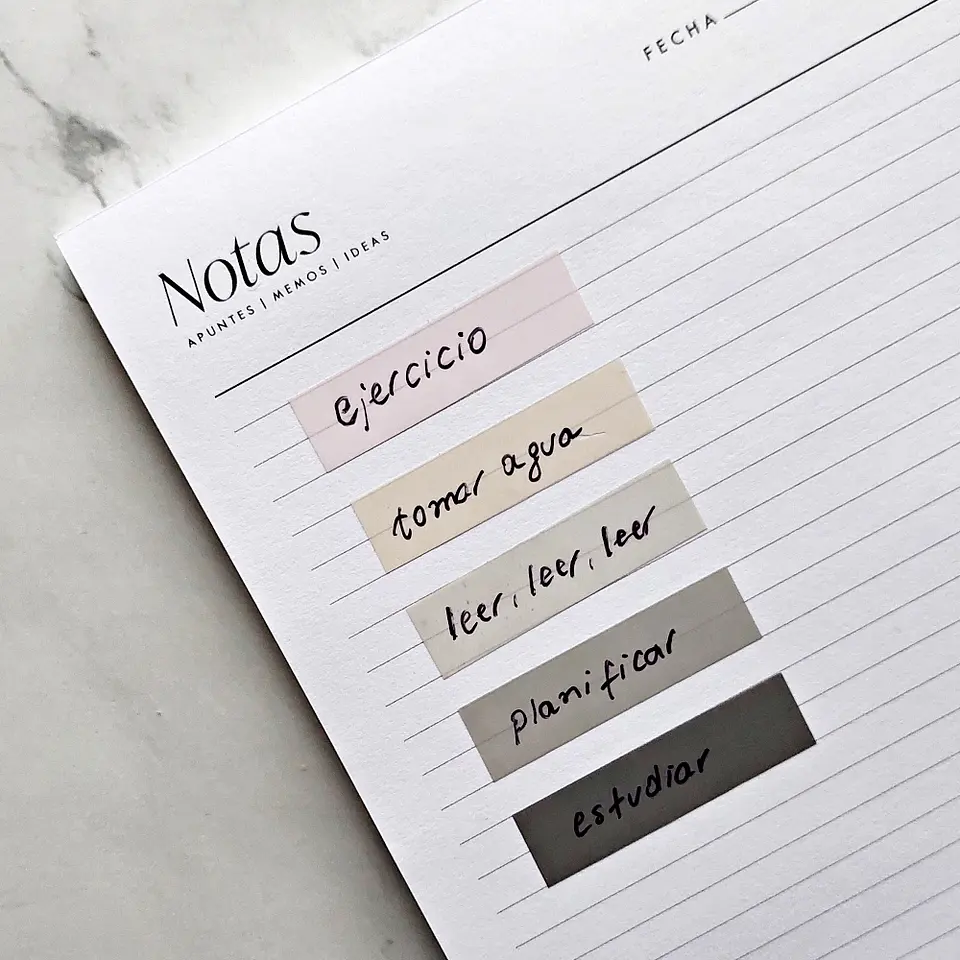 FECHA
Notas
APUNTES | MEMOS | IDEAS
ejercicio
tomar agua
leer, leer, leer
planificar
estudiar